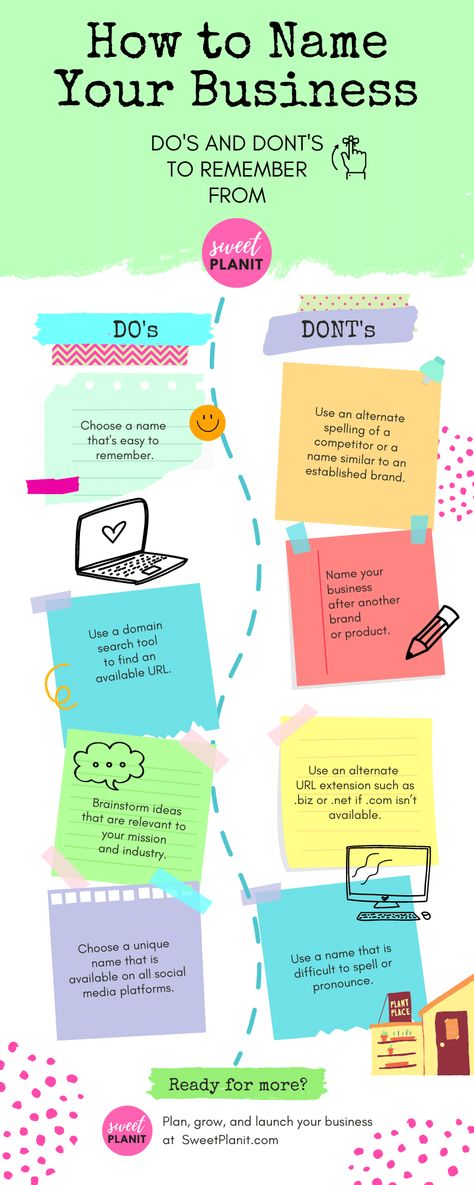 How to Name
Your Business
DO'S AND DONT'S
TO REMEMBER
FROM
sweet
PLANIT
DO's
Choose a name
that's easy to
remember.
Use a domain
search tool
to find an
available URL.
Brainstorm ideas
that are relevant to
your mission
and industry.
Choose a unique
name that is
available on all social
media platforms.
DONT's
Use an alternate
spelling of a
competitor or a
name similar to an
established brand.
Name your
business
after another
brand
or product.
Use an alternate
URL extension such as
.biz or .net if .com isn't
available.
Use a name that is
difficult to spell or
pronounce.
PLANT
PLACE
Ready for more?
sweet
PLANIT
Plan, grow, and launch your business
at SweetPlanit.com